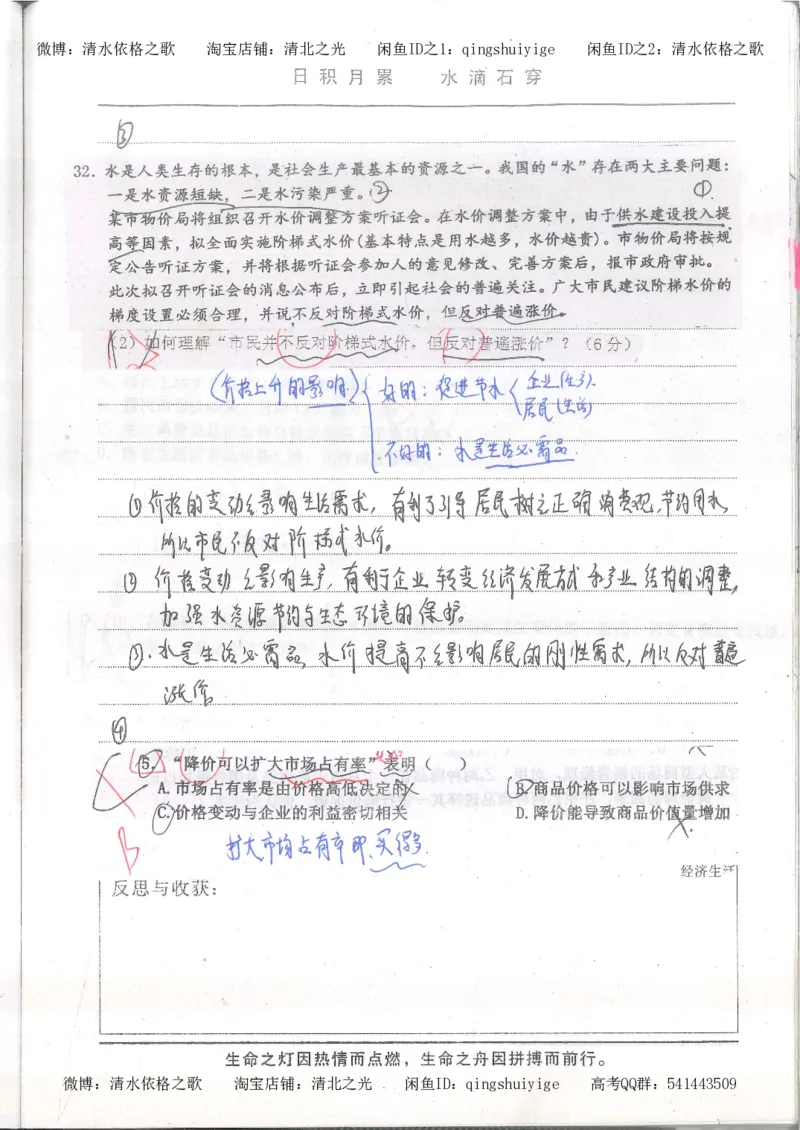 微博：清水依格之歌 淘宝店铺：清北之光 闲鱼ID之1：qingshuiyige 闲鱼ID之2：清水依格之歌
日积月累 水滴石穿
③
32．水是人类生存的根本，是社会生产最基本的资源之一。我国的“水”存在两大主要问题：
一是水资源短缺，二是水污染严重。② ①
某市物价局将组织召开水价调整方案听证会。在水价调整方案中，由于供水建设投入提
高等因素，拟全面实施阶梯式水价(基本特点是用水越多，水价越贵)。市物价局将按规
定公告听证方案，并将根据听证会参加人的意见修改、完善方案后，报市政府审批。
此次拟召开听证会的消息公布后，立即引起社会的普遍关注。广大市民建议阶梯水价的
梯度设置必须合理，并说不反对阶梯式水价，但反对普遍涨价。
(2) 如何理解“市民并不反对阶梯式水价，但反对普遍涨价”？（6分）
(价格上升的影响) 好的：促进节水 企业(生产).
居民(生活)
不好的：水是生活必需品.
①价格的变动会影响生活需求，有利于引导居民树立正确消费观,节约用水,
所以市民不反对阶梯式水价。
② 价格变动会影响生产,有利于企业转变经济发展方式和产业结构的调整,
加强水资源节约与生态环境的保护。
③.水是生活必需品,水价提高不会影响居民的刚性需求,所以反对普遍
涨价
④
5. “降价可以扩大市场占有率”表明（ ）
A.市场占有率是由价格高低决定的 B.商品价格可以影响市场供求
C.价格变动与企业的利益密切相关 D.降价能导致商品价值量增加
B
扩大市场占有率即,买得多.
经济生活
反思与收获：
生命之灯因热情而点燃，生命之舟因拼搏而前行。
微博：清水依格之歌 淘宝店铺：清北之光 闲鱼ID：qingshuiyige 高考QQ群：541443509